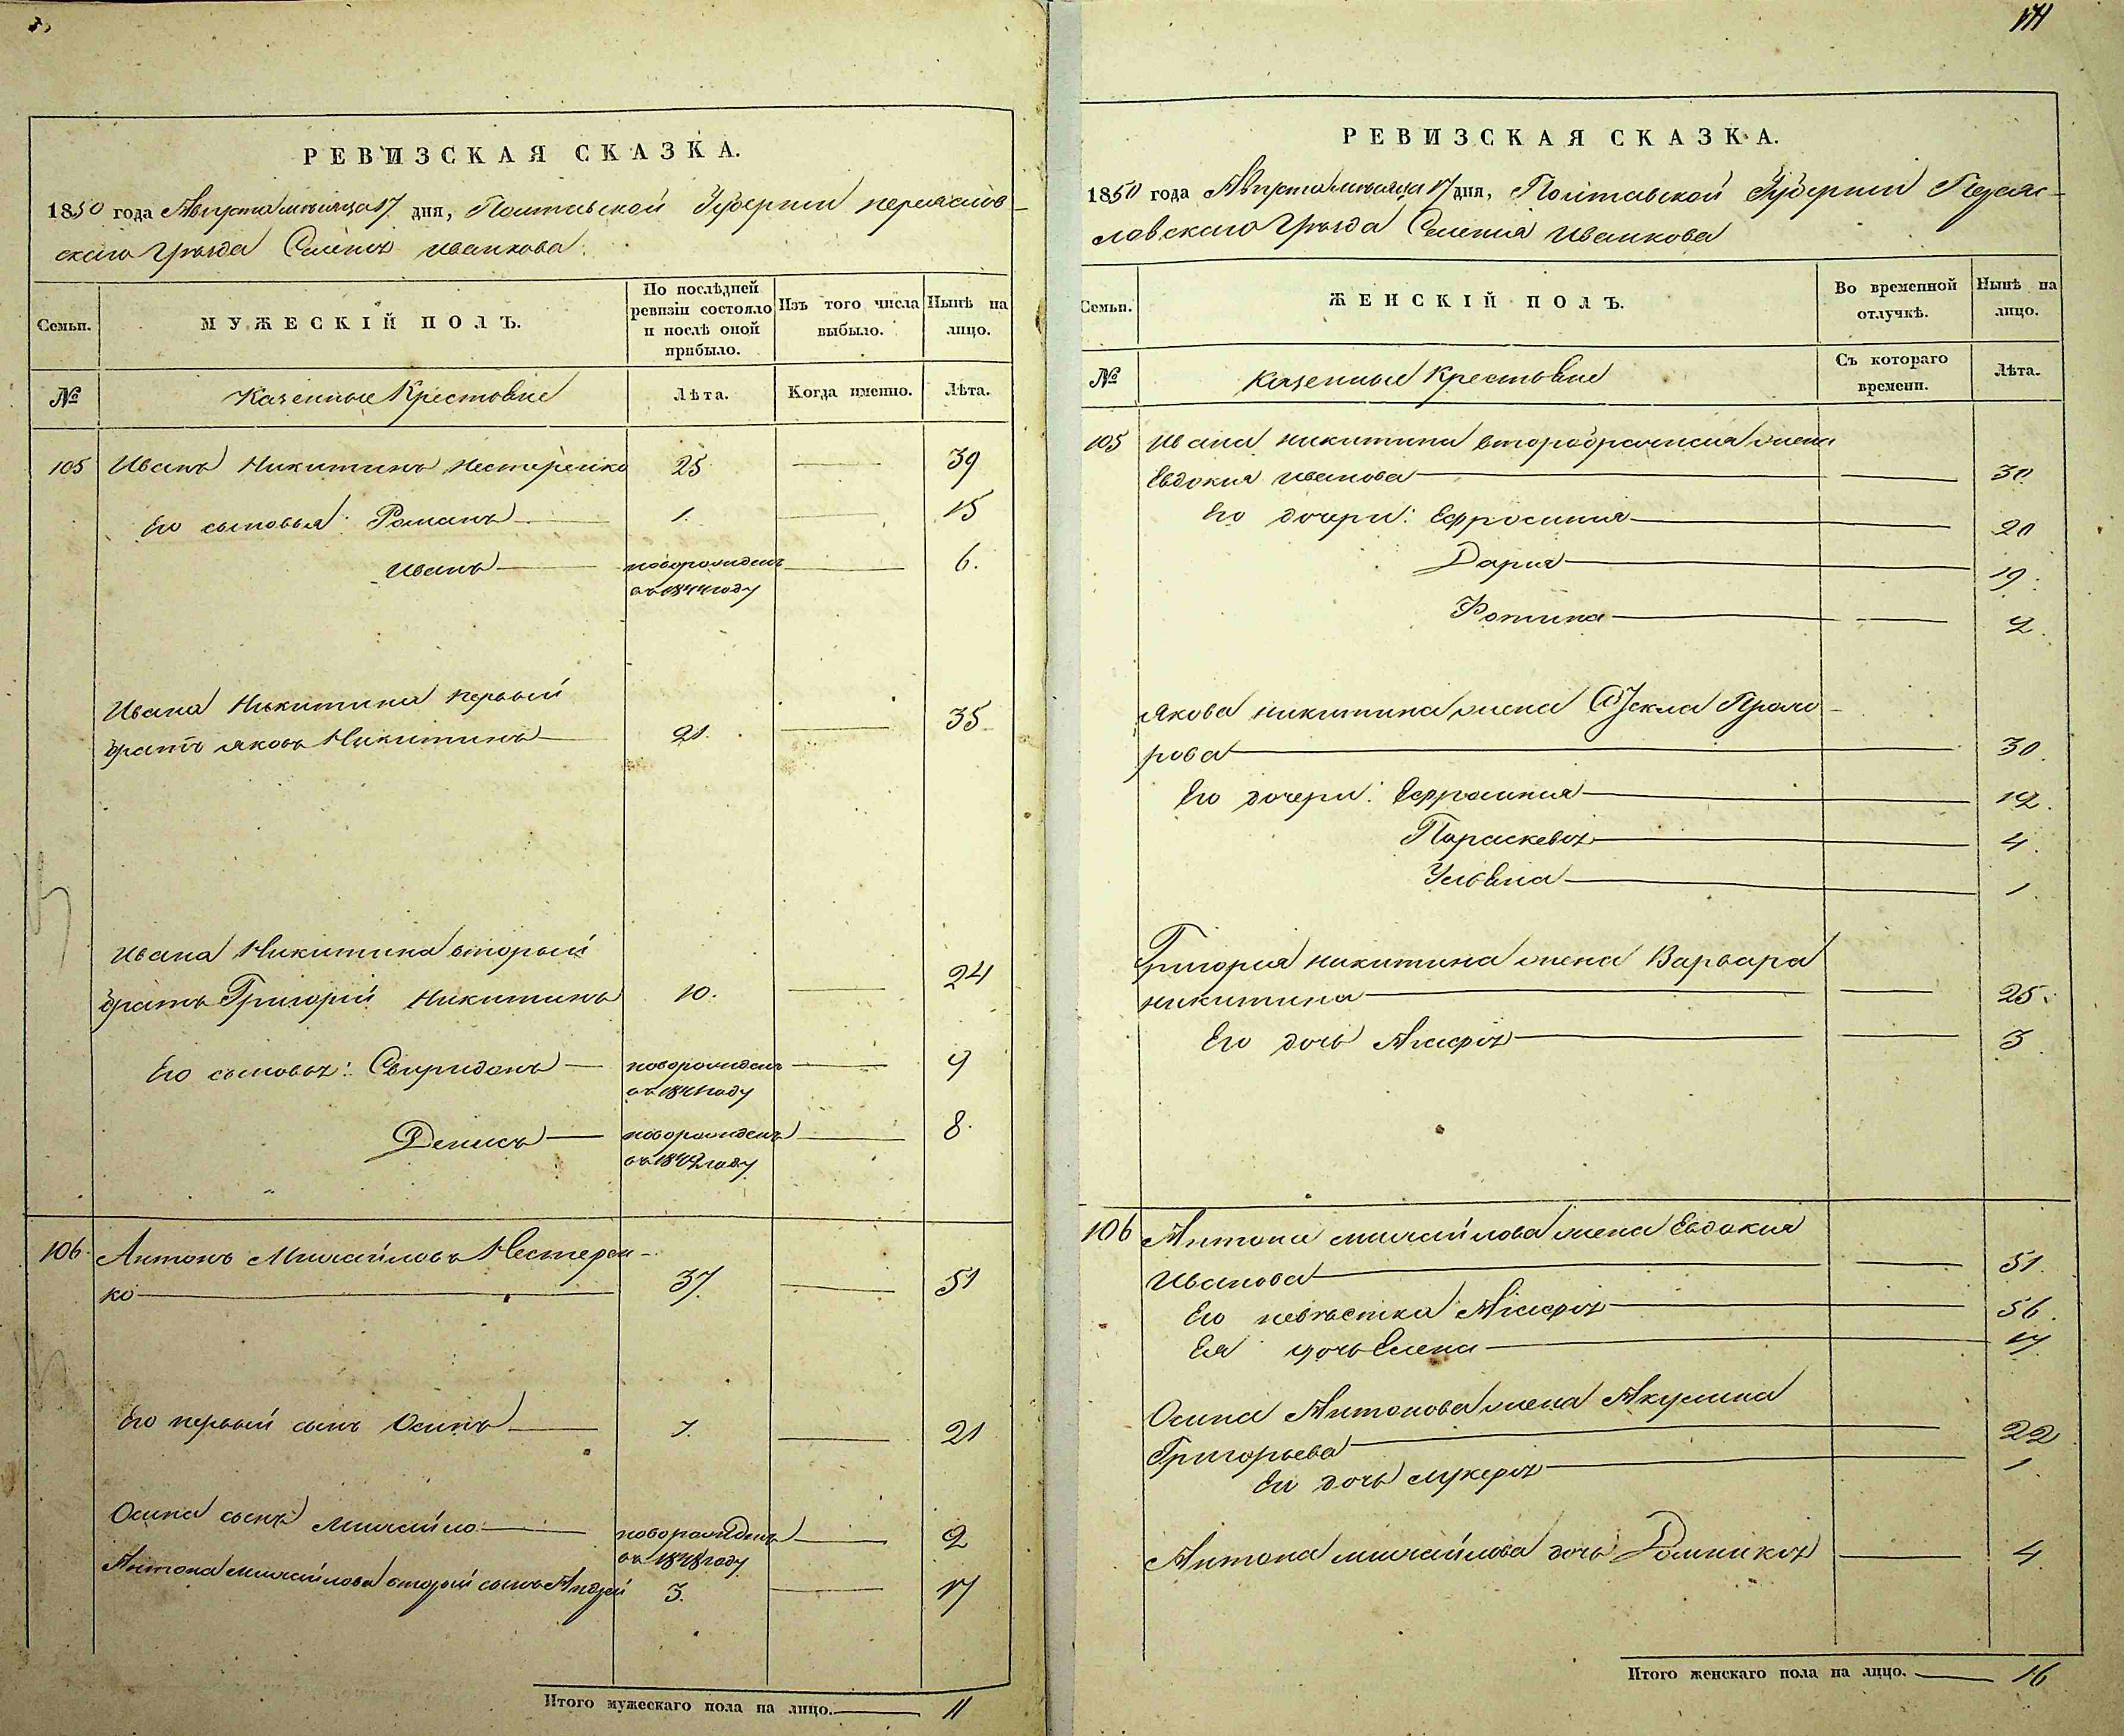 РЕВИЗСКАЯ СКАЗКА.
1850 года Августа месяца 17 дня, Полтавской Губернии Переяслов-
скаго Уезда Селенія Иванкова.
Семьи. МУЖЕСКІЙ ПОЛЪ. По послѣдней ревизіи состояло и послѣ оной прибыло. Изъ того числа выбыло. Нынѣ на лицо.
№ Казенные Крестьяне Лѣта. Когда именно. Лѣта.
105 Иванъ Никитинъ Нестеренко 25 — 39
Его сыновья: Романъ 1. — 15
Иванъ новорожденъ — 6.
въ 1844 году
Ивана Никитина первый
братъ Яковъ Никитинъ 21. — 35
Ивана Никитина вторый
братъ Григорій Никитинъ 10. — 24
Его сыновья: Свиридонъ — новорожденъ — 9
въ 1841 году
Денисъ — новорожденъ — 8.
въ 1842 году
106. Антонъ Михайловъ Нестерен-
ко 37. — 51
Его первый сынъ Осипъ 7. — 21
Осипа сынъ Михайло новорожденъ — 2
въ 1848 году
Антона Михайлова вторый сынъ Андрей 3. — 17
Итого мужескаго пола на лицо. — 11
РЕВИЗСКАЯ СКАЗКА.
1850 года Августа месяца 17 дня, Полтавской Губерніи Переяс-
ловскаго Уезда Селенія Иванкова
Семьи. ЖЕНСКІЙ ПОЛЪ. Во временной отлучкѣ. Нынѣ на лицо.
№ Казенные Крестьяне Съ котораго времени. Лѣта.
105 Ивана Никитина второбрачная жена
Евдокия Иванова — 30.
Его дочери: Ефросиния 20
Дария 19.
Фотина — 2.
Якова Никитина жена Фекла
рова 30.
Его дочери: Ефросиния 12.
Параскевья 4.
Ульяна 1.
Григория Никитина жена Варвара
Никитина — 25.
Его дочь Агафья — 3
106 Антона Михайлова жена Евдокия
Иванова — 51.
Его невѣстка Агафья 56.
Ея дочь Елена 17
Осипа Антонова жена Акулина
Григорьева 22
Ея дочь Лукерья 1.
Антона Михайлова дочь Домникья — 4
Итого женскаго пола на лицо. — 16